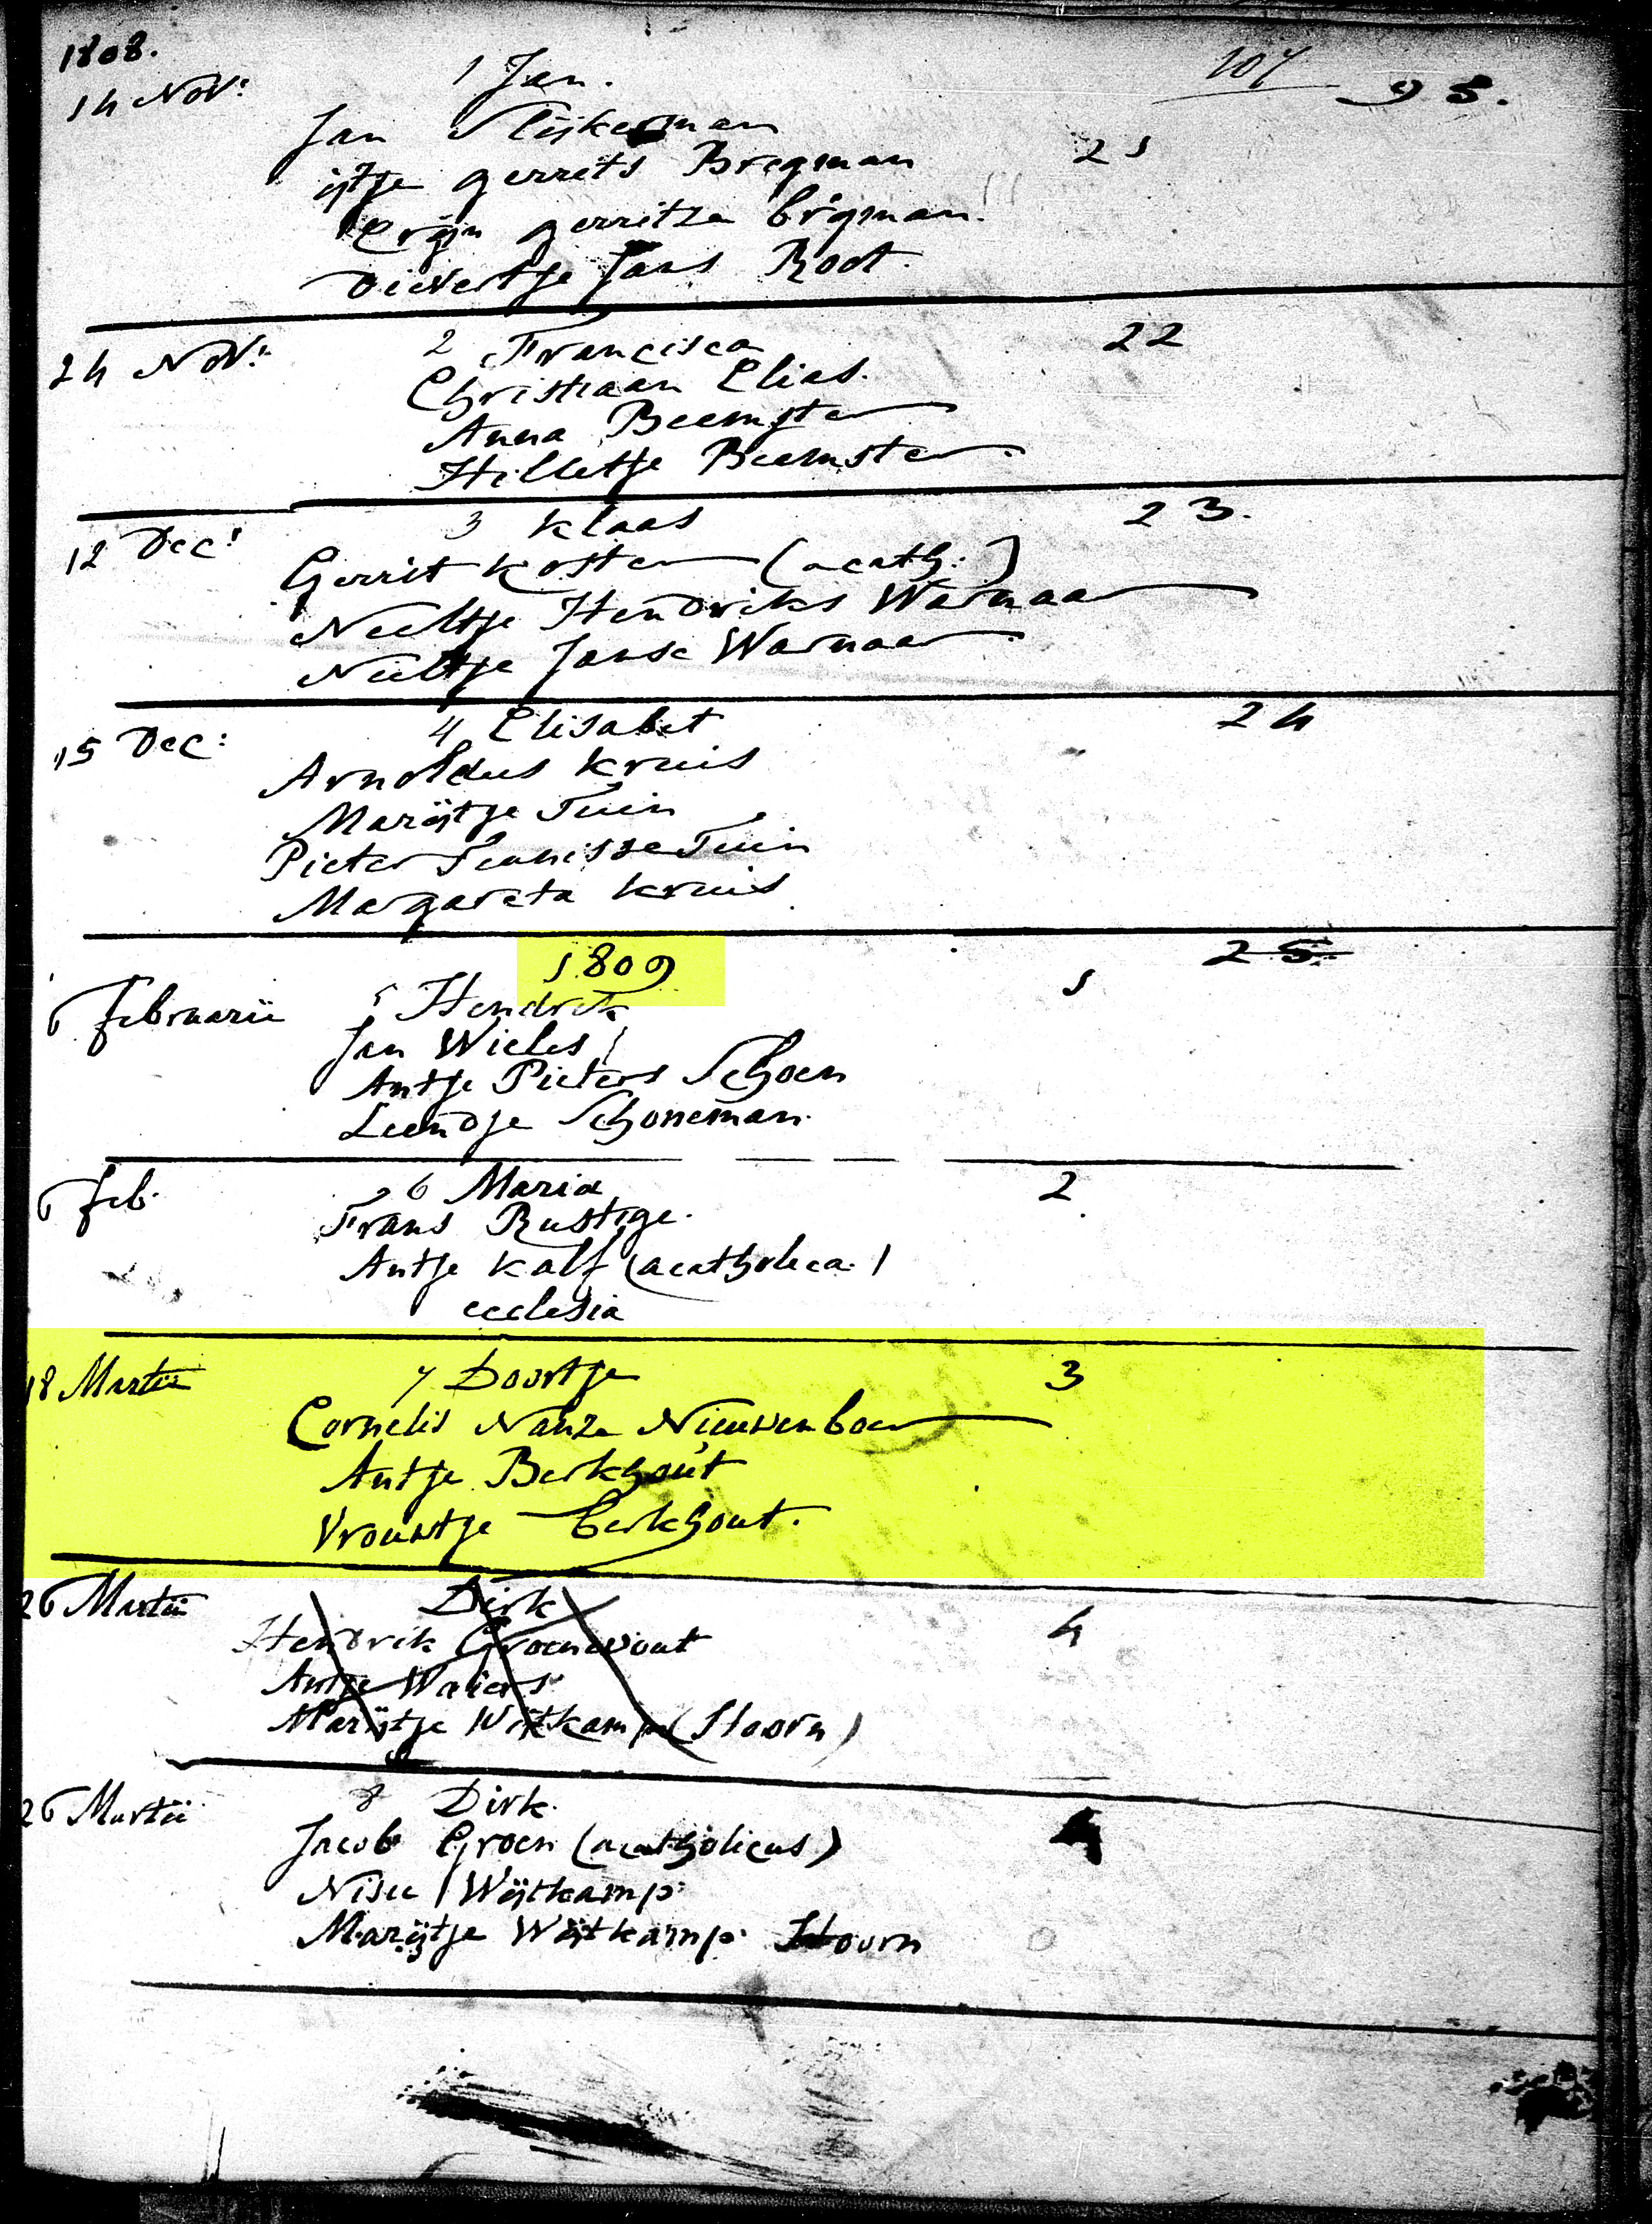 1808.
107 95.
14 Nov:
1 Jan.
Jan Slijkerman 21
ijtje gerrets Bregman
Crijn gerritze brgman.
Dievertje Jans Root.
24 Nov:
2 Francisca 22
Christiaan Elias.
Anna Beemster
Hilletje Beemster
12 Dec:
3 Klaas 23.
Gerrit Koster (acath:)
Neeltje Hendriks Warnaar
Neeltje Janse Warnaar
15 Dec:
4 Elisabet 24
Arnoldus Kruis
Marijtje Tuin
Pieter Teunisse Tuin
Margareta Kruis
1809 25.
6 Februarii 5 Hendrik 1
Jan Wieles
Antje Pieters Schoen
Leendje Schoneman.
6 Feb. 6 Maria 2
Frans Rustige.
Antje Kalf (acatholica)
ecclesia
18 Martii 7 Doortje 3
Cornelis Nanze Nieuwenboer
Antje Berkhout
Vrouwtje berkhout.
26 Martii Dirk 4
Hendrik Groenewout
Antje Waiers
Marijtje Wijtkamp (Hoorn)
26 Martii 8 Dirk. 4
Jacob Groen (acatholicus)
Nisee Wijtkamp
Marijtje Wijtkamp Hoorn